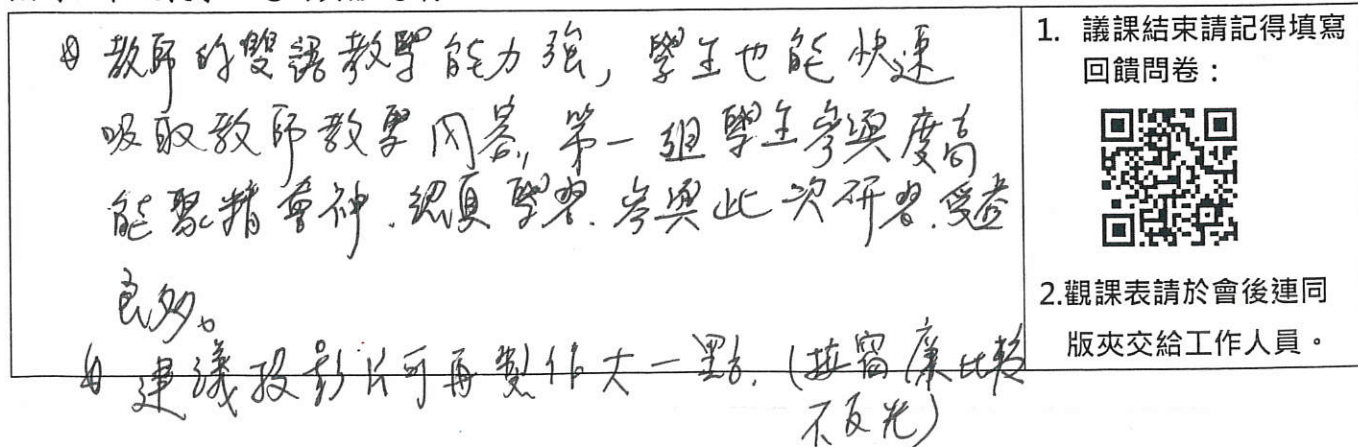 教師的雙語教學能力強, 學生也能快速
吸取教師教學內容, 第一組學生參與度高
能聚精會神、認真學習. 參與此次研習. 受益
良多。
建議投影片可再製作大一點. (拉窗廉比較
不反光)
1. 議課結束請記得填寫
回饋問卷：
2.觀課表請於會後連同
版夾交給工作人員。